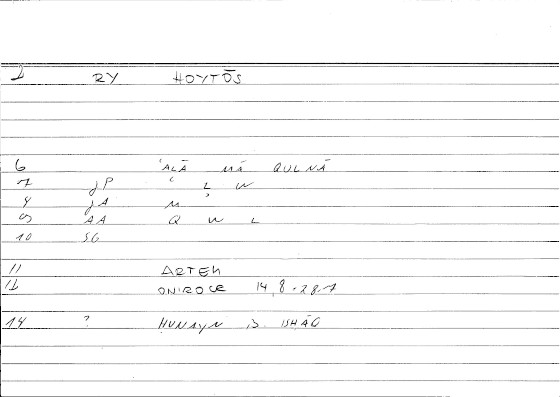 2 RY HOYTŌS
6 ʿALĀ MĀ QULNĀ
7 JP ʿ L W
8 JA M ʾ
9 AA Q W L
10 SG
11 ARTEM
12 ONIROCR 14,8 · 28.1
14 ? HUNAYN B. ISHĀQ